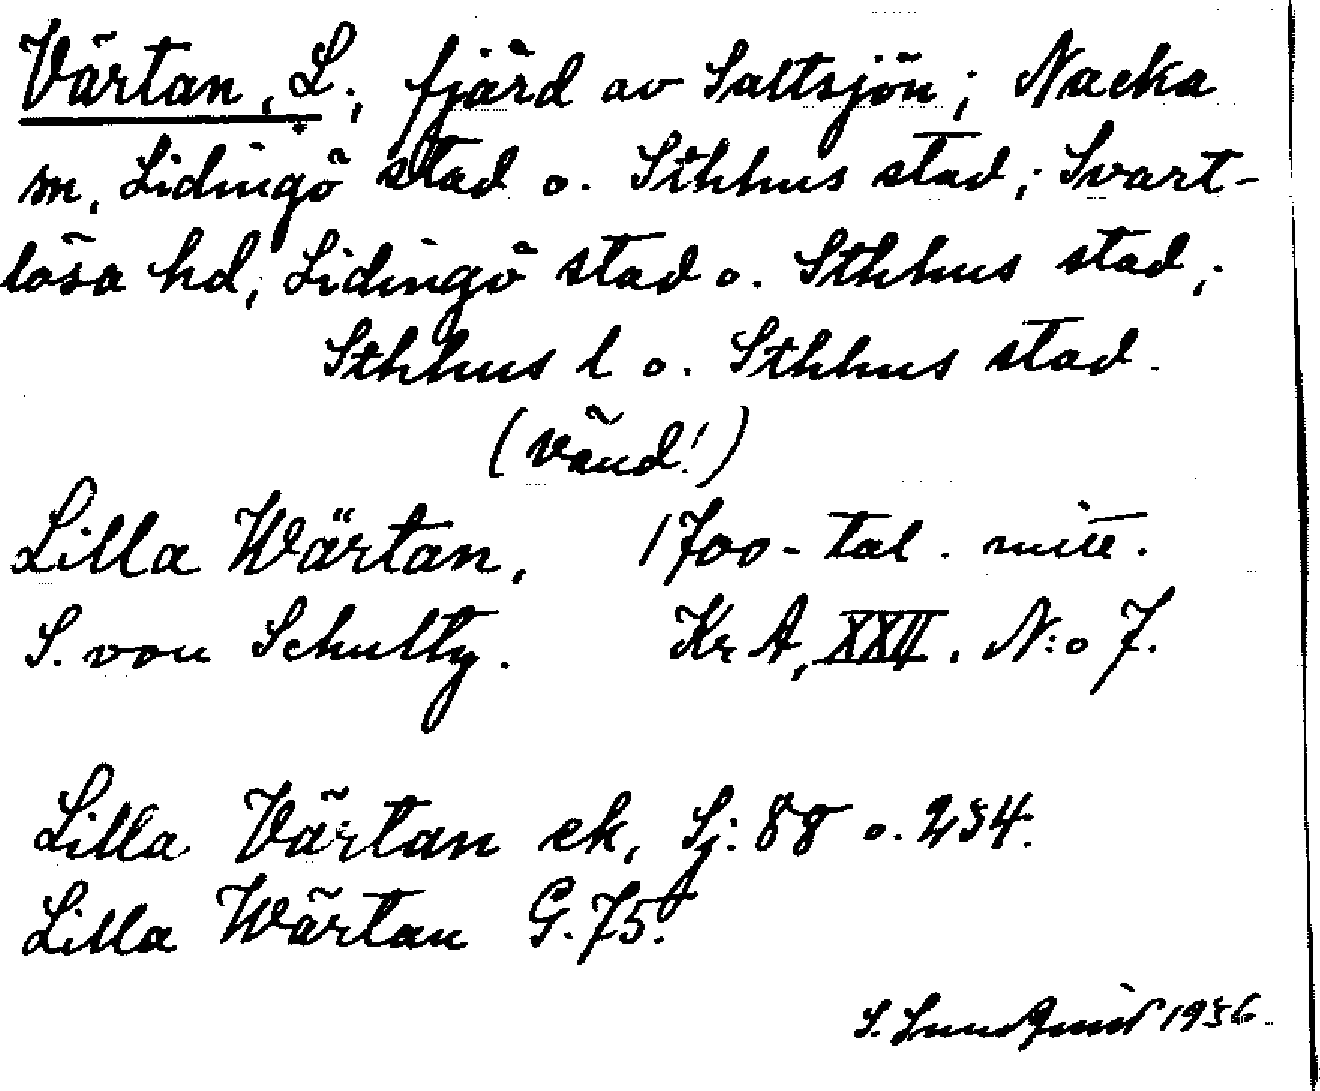 Värtan, L., fjärd av Saltsjön; Nacka
sn, Lidingö stad o. Sthlms stad; Svart-
lösa hd, Lidingö stad o. Sthlms stad;
Sthlms l o. Sthlms stad.
(vänd!)
Lilla Wärtan, 1700-tal. mitt.
S. von Schultz. Kr A, XXII. N:o 7.
Lilla Värtan ek, Sj: 88 o. 234.
Lilla Wärtan G. 75.
S. Lundqvist 1936.